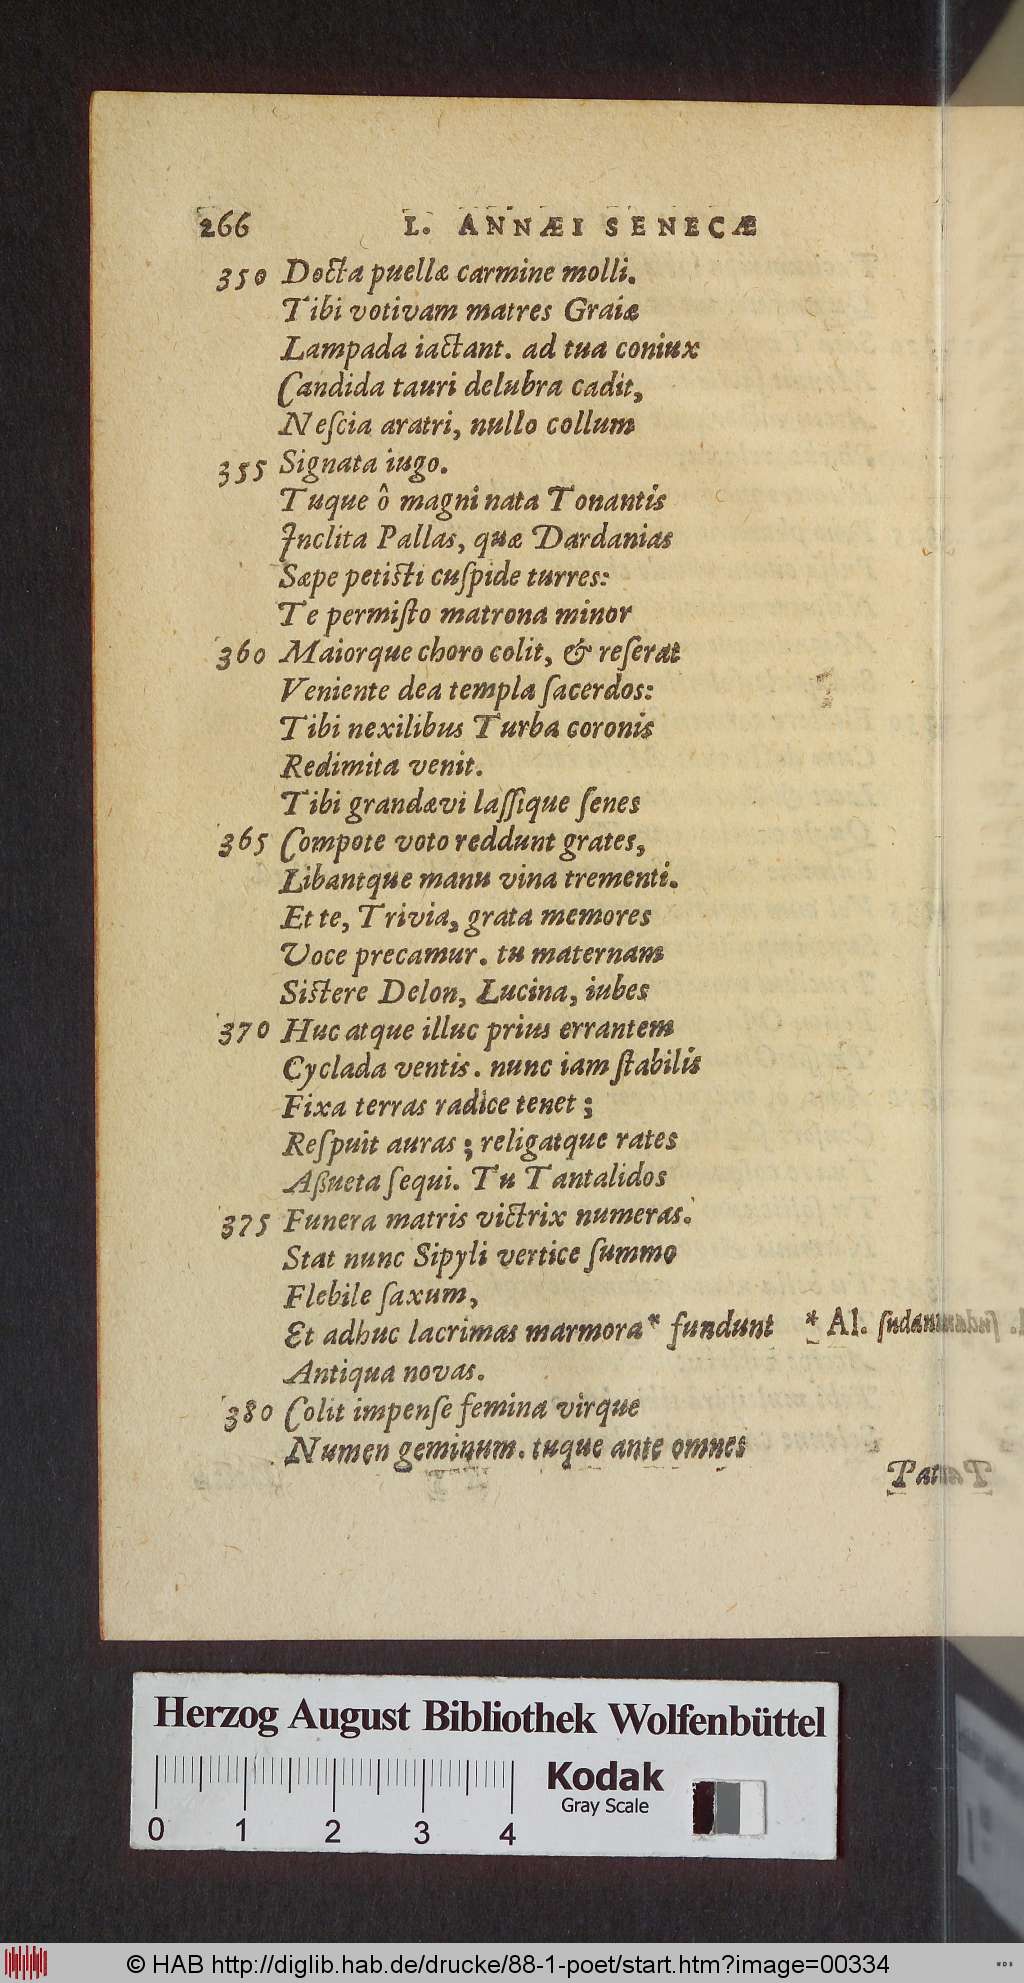 266 L. ANNÆI SENECÆ
350 Docta puellæ carmine molli.
Tibi votivam matres Graiæ
Lampada iactant. ad tua coniux
Candida tauri delubra cadit,
Neſcia aratri, nullo collum
355 Signata iugo.
Tuque ô magni nata Tonantis
Inclita Pallas, quæ Dardanias
Sæpe petiſti cuſpide turres:
Te permiſto matrona minor
360 Maiorque choro colit, & reſerat
Veniente dea templa ſacerdos:
Tibi nexilibus Turba coronis
Redimita venit.
Tibi grandævi laſſique ſenes
365 Compote voto reddunt grates,
Libantque manu vina trementi.
Et te, Trivia, grata memores
Voce precamur. tu maternam
Siſtere Delon, Lucina, iubes
370 Huc atque illuc prius errantem
Cyclada ventis. nunc iam ſtabilis
Fixa terras radice tenet;
Reſpuit auras; religatque rates
Aßueta ſequi. Tu Tantalidos
375 Funera matris victrix numeras.
Stat nunc Sipyli vertice ſummo
Flebile ſaxum,
Et adhuc lacrimas marmora* fundunt * Al. ſudan
Antiqua novas.
380 Colit impenſe femina virque
Numen geminum. tuque ante omnes
Pat
Herzog August Bibliothek Wolfenbüttel
Kodak
Gray Scale
0 1 2 3 4
© HAB http://diglib.hab.de/drucke/88-1-poet/start.htm?image=00334